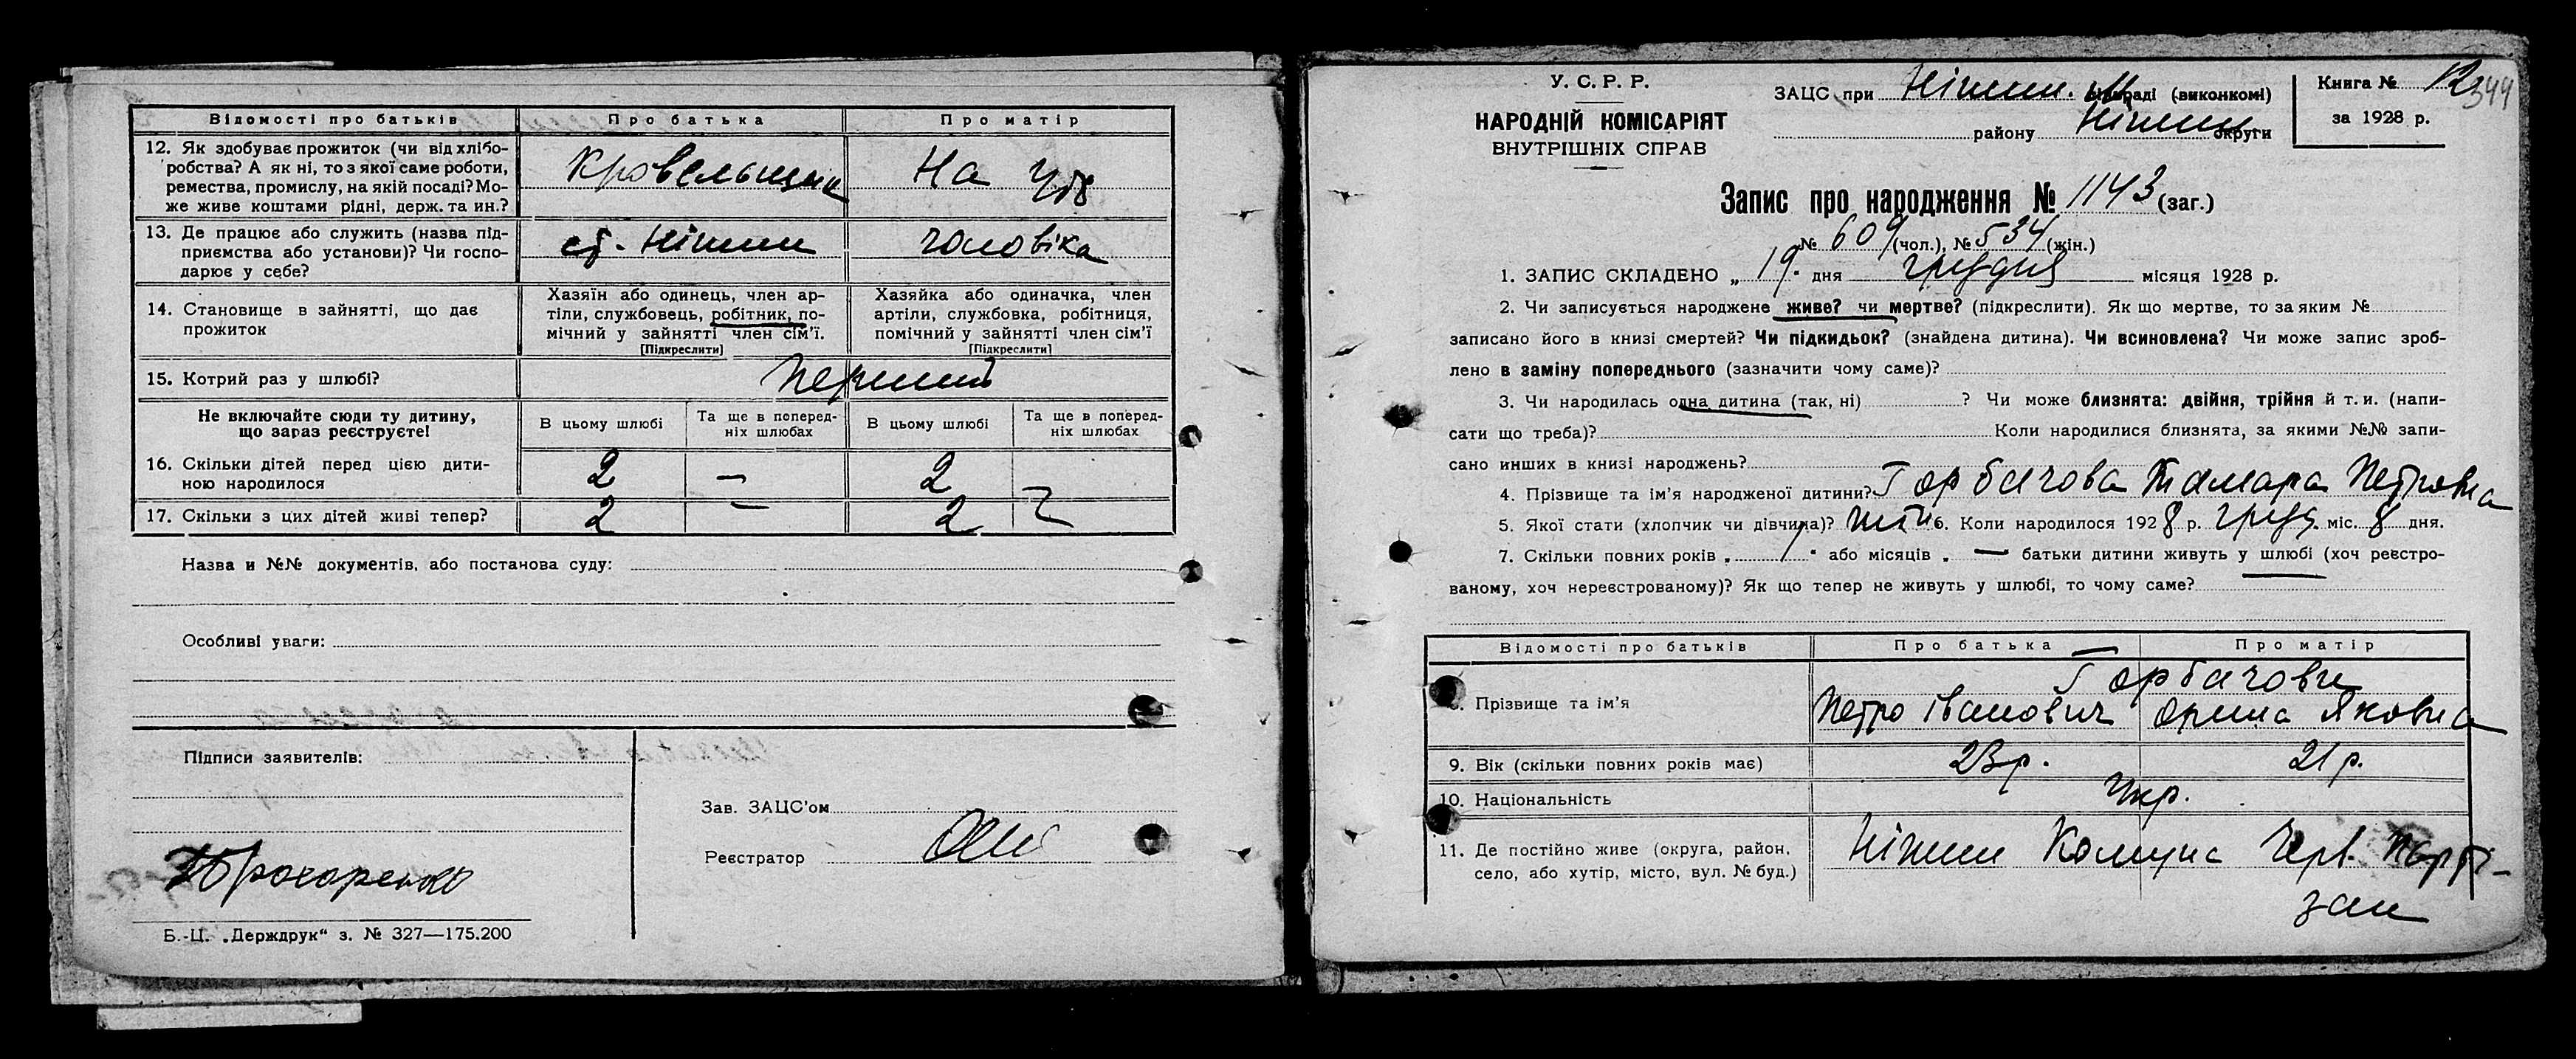 Відомості про батьків Про батька Про матір
12. Як здобуває прожиток (чи від хлібо-
робства? А як ні, то з якої саме роботи,
ремества, промислу, на якій посаді? Мо-
же живе коштами рідні, держ. та ин.?
Кровельщик На утр
13. Де працює або служить (назва під-
приємства або установи)? Чи госпо-
дарює у себе?
ст. Ніжин чоловіка
14. Становище в зайнятті, що дає
прожиток
Хазяїн або одинець, член ар-
тіли, службовець, робітник, по-
мічний у зайнятті член сім'ї.
[Підкреслити]
Хазяйка або одиначка, член
артіли, службовка, робітниця,
помічний у зайнятті член сім'ї
[Підкреслити]
15. Котрий раз у шлюбі? перший
Не включайте сюди ту дитину,
що зараз реєструєте!
В цьому шлюбі
Та ще в поперед-
ніх шлюбах
В цьому шлюбі
Та ще в поперед-
ніх шлюбах
16. Скільки дітей перед цією дити-
ною народилося
2 — 2
17. Скільки з цих дітей живі тепер? 2 — 2
Назва и №№ документів, або постанова суду:
Особливі уваги:
Підписи заявителів:
Зав. ЗАЦС'ом
Реєстратор
Б.-Ц. „Держдрук“ з. № 327—175.200
У. С. Р. Р.
НАРОДНІЙ КОМІСАРІЯТ
ВНУТРІШНІХ СПРАВ
ЗАЦС при Ніжин. м (виконкомі)
району Ніжин округи
Книга № 12 344
за 1928 р.
Запис про народження № 1143 (заг.)
№ 609 (чол.), № 534 (жін.)
1. ЗАПИС СКЛАДЕНО „ 19. дня грудня місяця 1928 р.
2. Чи записується народжене живе? чи мертве? (підкреслити). Як що мертве, то за яким №
записано його в книзі смертей? Чи підкидьок? (знайдена дитина). Чи всиновлена? Чи може запис зроб-
лено в заміну попереднього (зазначити чому саме)?
3. Чи народилась одна дитина (так, ні) ? Чи може близнята: двійня, трійня й т. и. (напи-
сати що треба)? Коли народилися близнята, за якими №№ запи-
сано инших в книзі народжень?
4. Прізвище та ім'я народженої дитини? Горбачова Тамара Петровна
5. Якої стати (хлопчик чи дівчина)? 6. Коли народилося 1928 р. груд. міс. 8 дня.
7. Скільки повних років „ “ або місяців „ — батьки дитини живуть у шлюбі (хоч реєстро-
ваному, хоч нереєстрованому)? Як що тепер не живуть у шлюбі, то чому саме?
Відомості про батьків Про батька Про матір
Горбачови
8. Прізвище та ім'я Петро Іванович Орина Яковна
9. Вік (скільки повних років має) 23 р. 21 р.
10. Національність Укр.
11. Де постійно живе (округа, район,
село, або хутір, місто, вул. № буд.)
Ніжин Комуна Черв. Парти-
зан